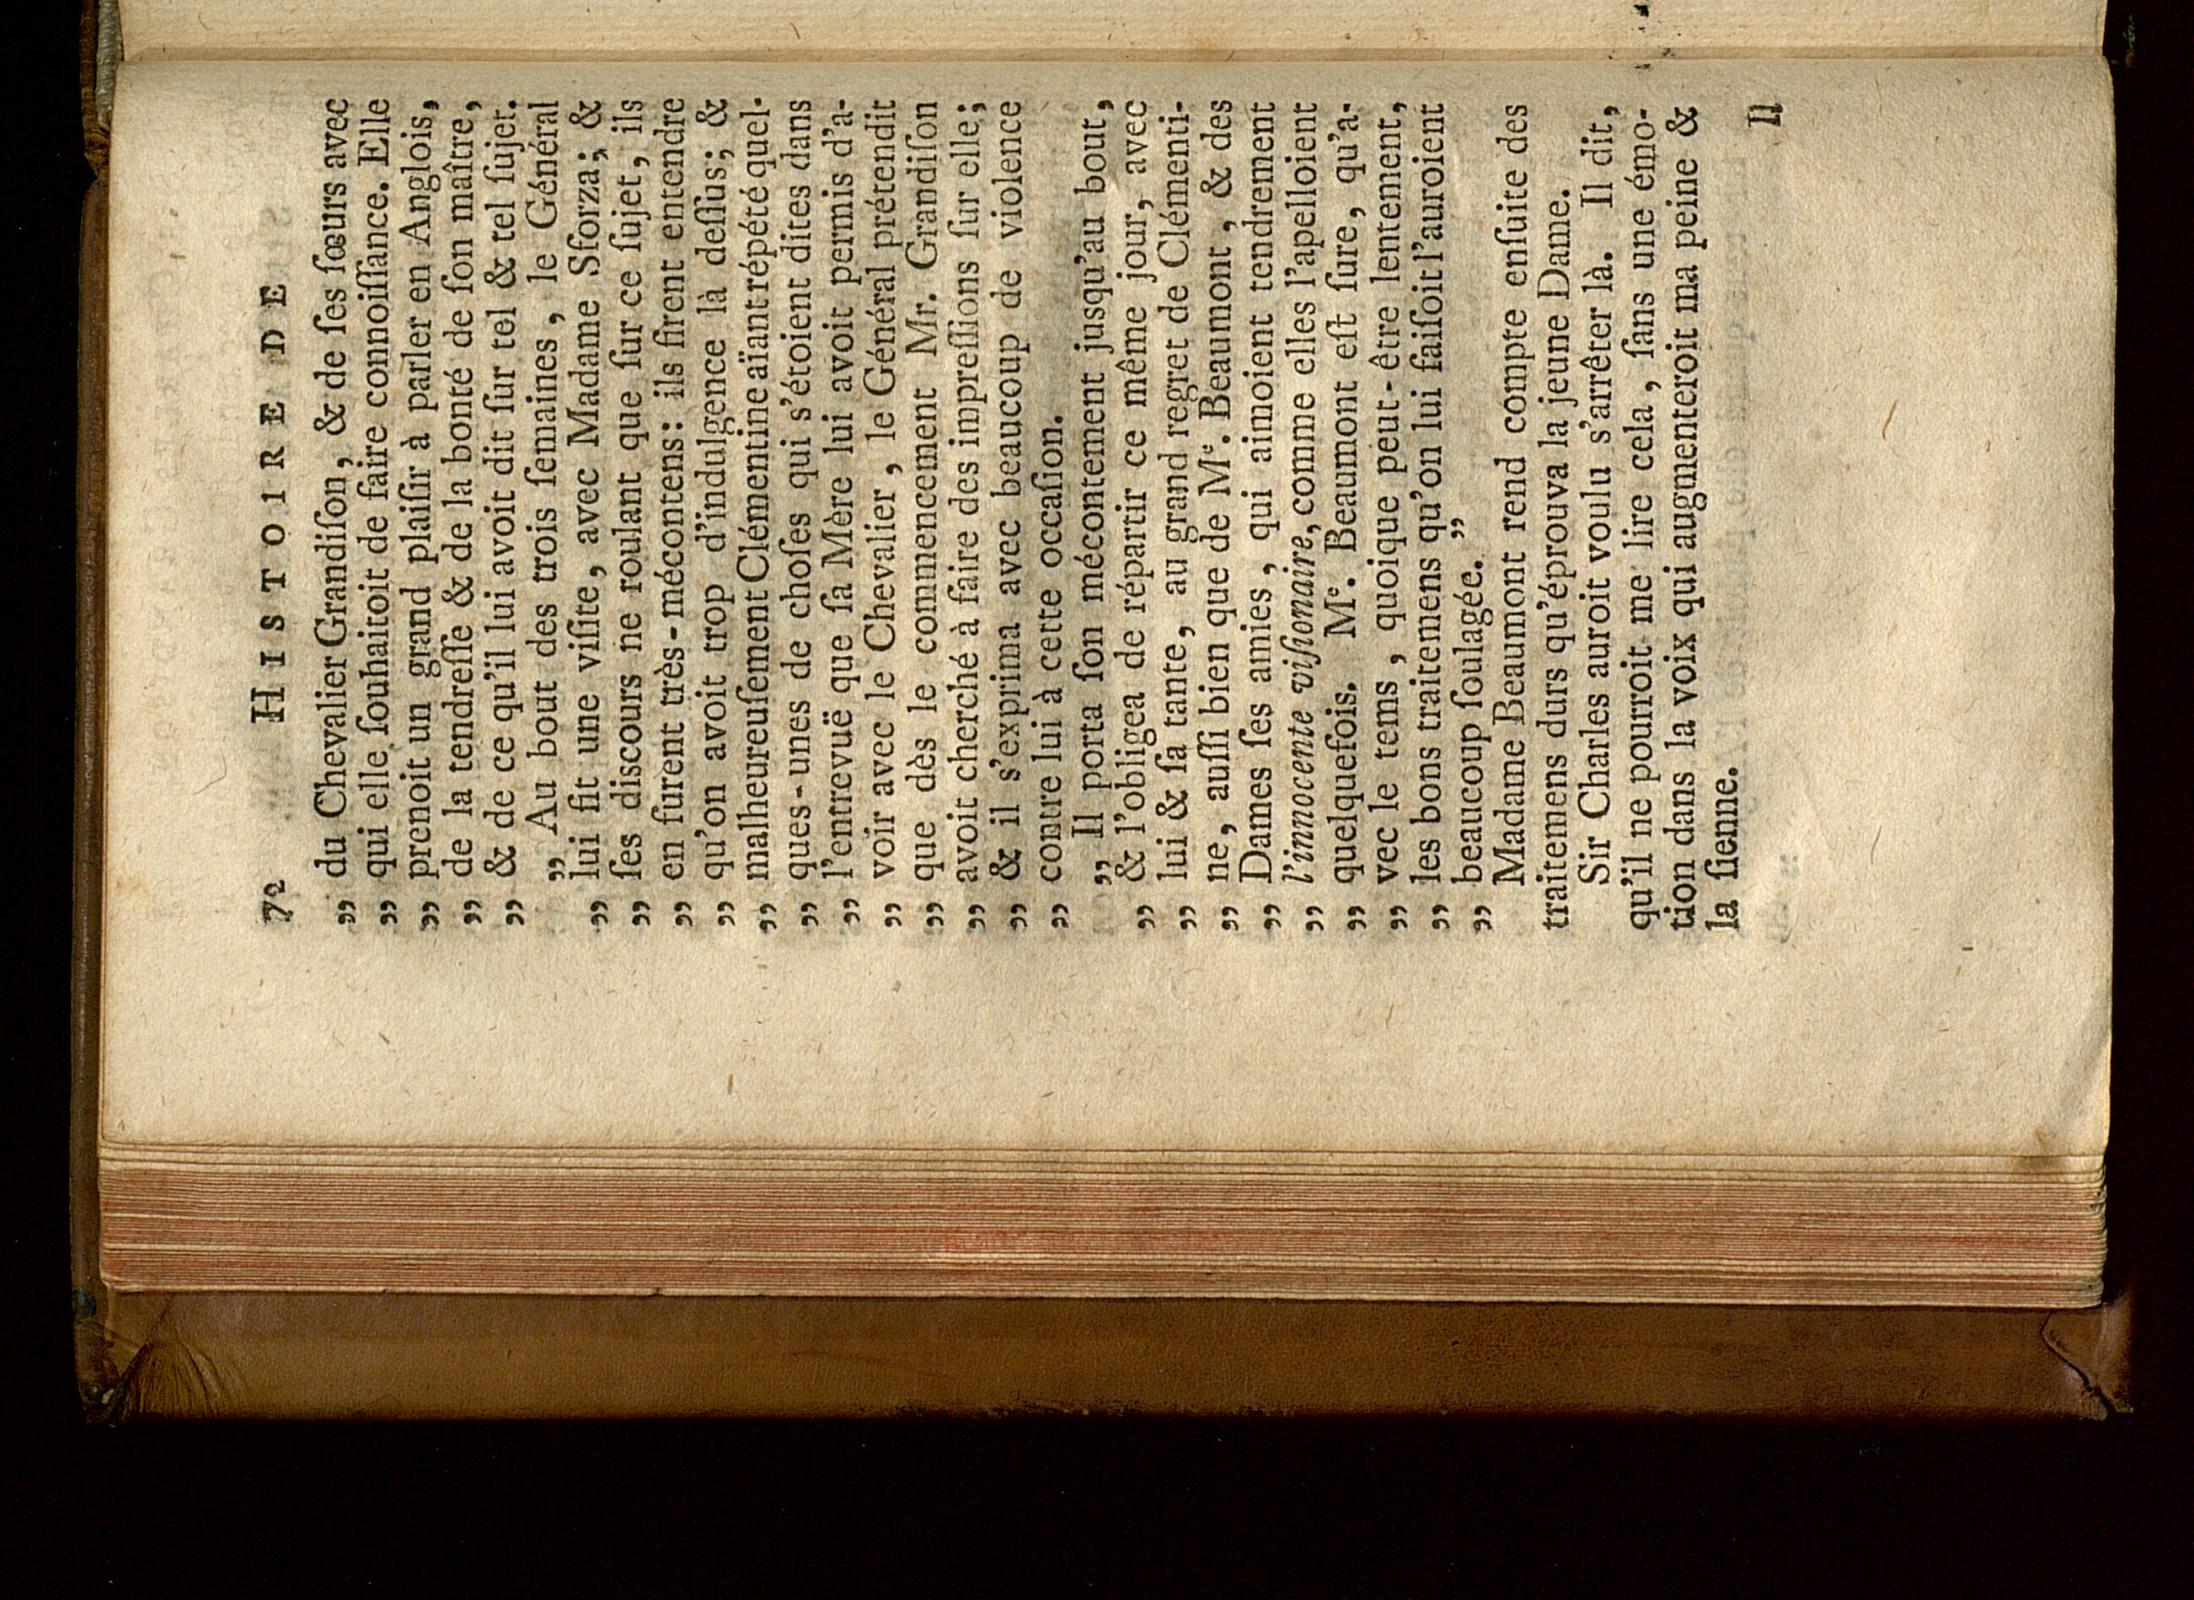 72 HISTOIRE DE
„ du Chevalier Grandiſon, & de ſes ſœurs avec
„ qui elle ſouhaitoit de faire connoiſſance. Elle
„ prenoit un grand plaiſir à parler en Anglois,
„ de la tendreſſe & de la bonté de ſon maître,
„ & de ce qu'il lui avoit dit ſur tel & tel ſujet.
„ Au bout des trois ſemaines, le Général
„ lui fit une viſite, avec Madame Sforza; &
„ ſes discours ne roulant que ſur ce ſujet, ils
„ en furent très-mécontens: ils firent entendre
„ qu'on avoit trop d'indulgence là deſſus; &
„ malheureuſement Clémentine aïant répété quel-
„ ques-unes de choſes qui s'étoient dites dans
„ l'entrevuë que ſa Mère lui avoit permis d'a-
„ voir avec le Chevalier, le Général prétendit
„ que dès le commencement Mr. Grandiſon
„ avoit cherché à faire des impreſſions ſur elle;
„ & il s'exprima avec beaucoup de violence
„ contre lui à cette occaſion.
„ Il porta ſon mécontement jusqu'au bout,
„ & l'obligea de répartir ce même jour, avec
„ lui & ſa tante, au grand regret de Clémenti-
„ ne, auſſi bien que de Me. Beaumont, & des
„ Dames ſes amies, qui aimoient tendrement
„ l'innocente viſionaire, comme elles l'apelloient
„ quelquefois. Me. Beaumont eſt ſure, qu'a-
„ vec le tems, quoique peut-être lentement,
„ les bons traitemens qu'on lui faiſoit l'auroient
„ beaucoup ſoulagée.”
Madame Beaumont rend compte enſuite des
traitemens durs qu'éprouva la jeune Dame.
Sir Charles auroit voulu s'arrêter là. Il dit,
qu'il ne pourroit me lire cela, ſans une émo-
tion dans la voix qui augmenteroit ma peine &
la ſienne.
Il